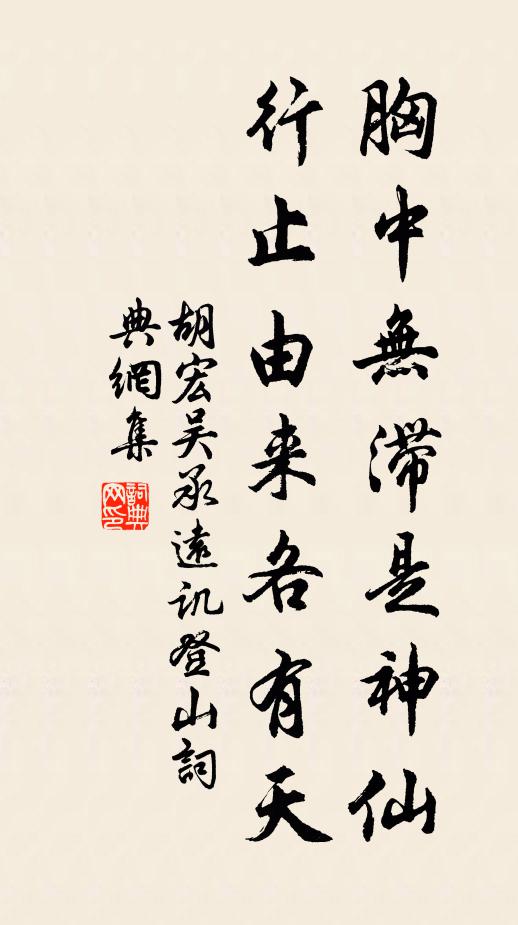 胸中無滯是神仙
行止由来各有天
胡宏吴承遠訊登山詞
典網集
詞典
网印